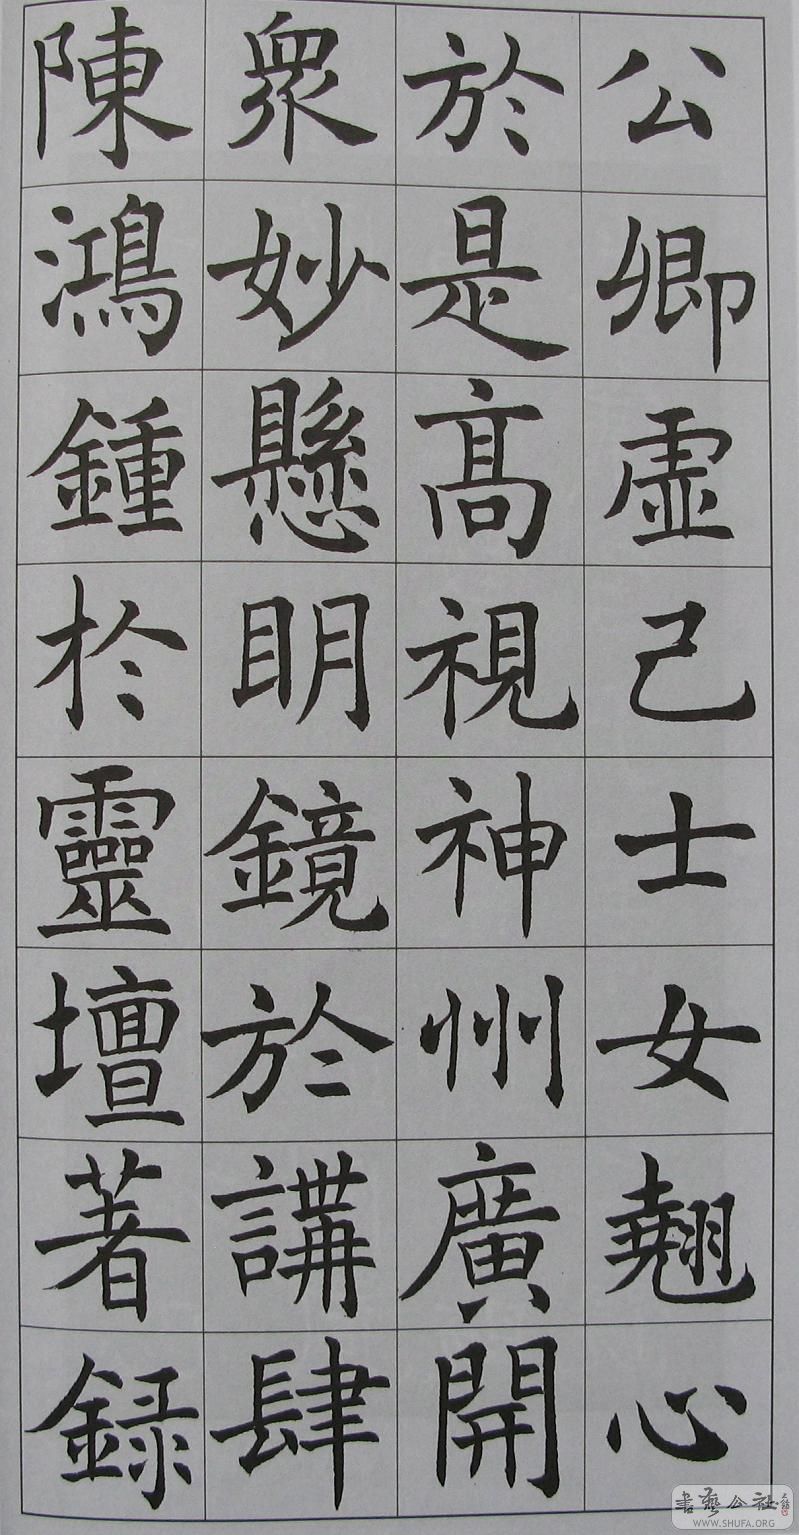 公卿虛己士女翹心
於是髙視神州廣開
衆妙懸眀鏡於講肆
陳鴻鍾於靈壇著録
書藝公社
WWW.SHUFA.ORG